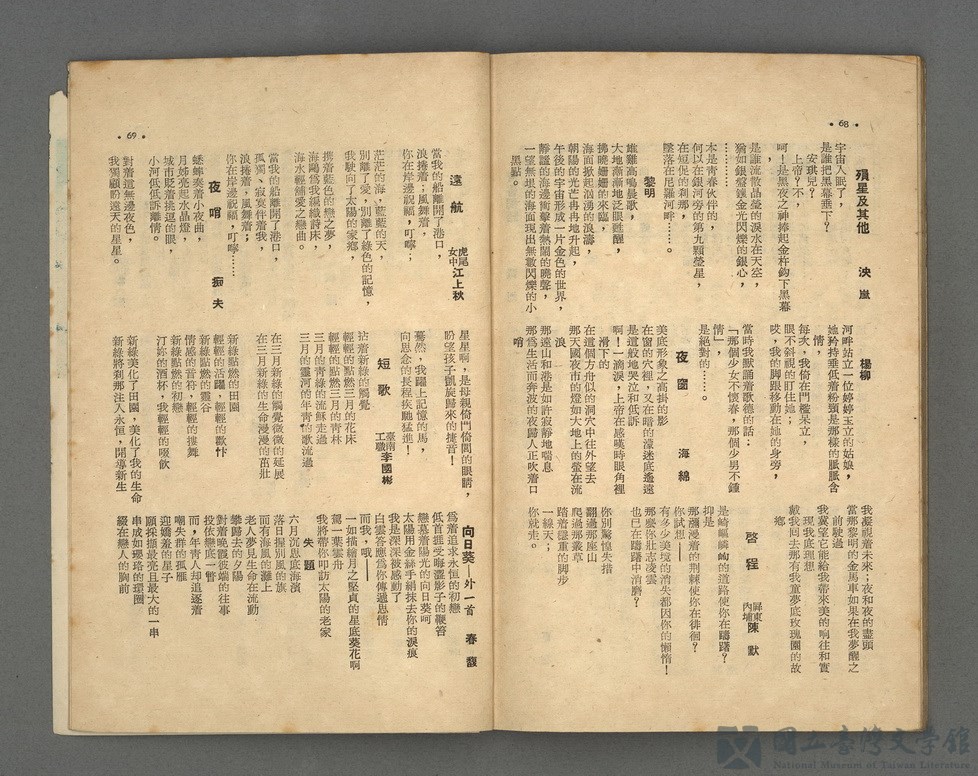 •68•
殞星及其他　泱嵐
宇宙入眠了，
是誰把黑幕垂下？
安琪兒？
上帝？不，
呵！是黑夜之神捧起金杵鈎下黑幕
是誰流散晶瑩的淚水在天空，
猶如銀盤鑲金光閃爍的銀心，
…………
本是青春伙伴的，
何以在銀河旁的第九顆瑩星，
在短促的刹那，
墜落在尼羅河畔。
黎明
雄雞高鳴晨歌，
大地漸漸地泛眼甦醒，
拂曉姍姍的來臨，
海面掀起汹湧的浪濤，
朝陽的光芒冉冉地升起，
午後的宇宙形成一片金色的世界，
靜謐的海邊衝擊着熱鬧的曉聲，
一望無垠的海面現出無數閃爍的小
黑點。
楊柳
河畔站立一位婷婷玉立的姑娘，
她矜持垂低着粉頸是那樣的脈脈含
情，
每次，我倚在門檻呆立，
眼不斜視的盯住她；
哎，我的脚跟移動在她的身旁，
當時我默誦着歌德的話：
「那個少女不懷春，那個少男不鍾
情」，
是絕對的……。
夜窗　海綿
美底形象之高掛的影
在窗的穴裡，又在暗的濛迷底遙遠
是這般地哭泣和低訴
啊！一滴淚，上帝在感嘆時眼角裡
滑下的
在這個方舟似的洞穴中往外望去
那天國夜市的燈如大地上的螢在流
浪
那遠山和港是如許寂靜地喘息
那爲生活而奔波的夜歸人正吹着口
哨
我凝視着未來；夜和夜的盡頭
當那黎明的金馬車如果在我夢醒之
前駛過
我冀望它能給我帶來美的响往和實
現我底理想
戴我回去那有我童夢底玫瑰園的故
鄉
啓程　屏東內埔陳默
是崎嶇嶙峋的道路使你在躊躇？
抑是
那瀰漫着的荆棘使你在徘徊？
你試想——
有多少美境的消失都因你的懶惰！
那麼你壯志凌雲
也已在躊躇中消磨？
你別驚惶失措
翻過那座山
爬過那叢草
踏着穩重的脚步
一線天；
你就走。
•69•
遠航　虎尾女中江上秋
當我的船離開了港口，
浪捲着；風舞着，
你在岸邊祝福，叮嚀；
茫茫的海，藍藍的天，
別離了愛，別離了綠色的記憶，
我駛向了太陽的家鄉，
携着藍色的戀之夢，
海鷗爲我編織詩床，
海水輕舖愛之戀曲。
當我的船離開了港口，
孤獨、寂寞伴着我，
浪捲着，風舞着；
你在岸邊祝福，叮嚀……
夜哨　痴夫
蟋蟀奏着小夜曲，
月姊亮起水晶燈，
城市眨着挑逗的眼，
小河低低訴離情。
對着這無邊夜色，
我獨顧盼遠天的星星。
星星啊，是母親倚門倚閭的眼睛，
盼望孩子凱旋歸來的捷音！
驀然，我躍上記憶的馬，
向思念的長程疾馳猛進！
短歌　臺南工職李國彬
拈着新綠的觸覺
輕輕的點燃三月的花床
輕輕的點燃三月的青林
三月的青綠的流蘇走過
三月的靈河的年青的歌流過
在三月新綠的觸覺微微的延展
在三月新綠的生命漫漫的茁壯
新綠點燃的田園
輕輕的活躍，輕輕的歡忭
新綠點燃的靈谷
情感的音符，輕輕的摟舞
新綠點燃的初戀
汀妳的酒杯，我輕輕的啜飲
新綠美化了田園，美化了我的生命
新綠將刹那注入永恒，開導新生
向日葵——外一首　春馥
爲着追求永恒的初戀
低首猥受晦澀影子的鞭笞
戀慕着陽光的向日葵呵
太陽用金絲手絹抹去你的淚痕
我是深深被感動了
白雲答應爲你傳遞恩情
而我，哦——
一如描繪月之堅貞的星底葵花啊
駕一葉雲舟
我將帶你叩訪太陽的老家
失題
六月沉思底海濱
落日握別風的旗
而有海風的灘上
老人夢見生命在流動
攀歸去的夕陽
對着晚霞彼端的往事
投依戀底一瞥
而，年青人却追逐着
嘲失群的孤雁
迎嬌羞的星子
顧採擷最亮且最大的一串
串成如瓔珞的環圈
綴在戀人的胸前
國立臺灣文學館
National Museum of Taiwan Literature